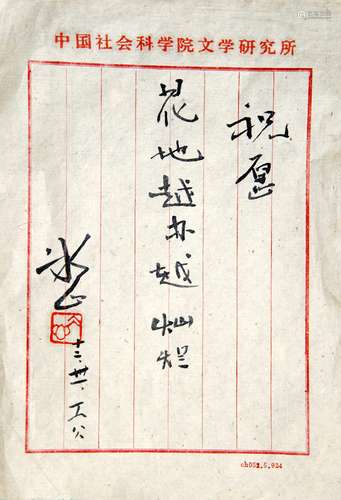 中国社会科学院文学研究所
祝愿
花地越办越灿烂
十二、卅、
ch052.5.924